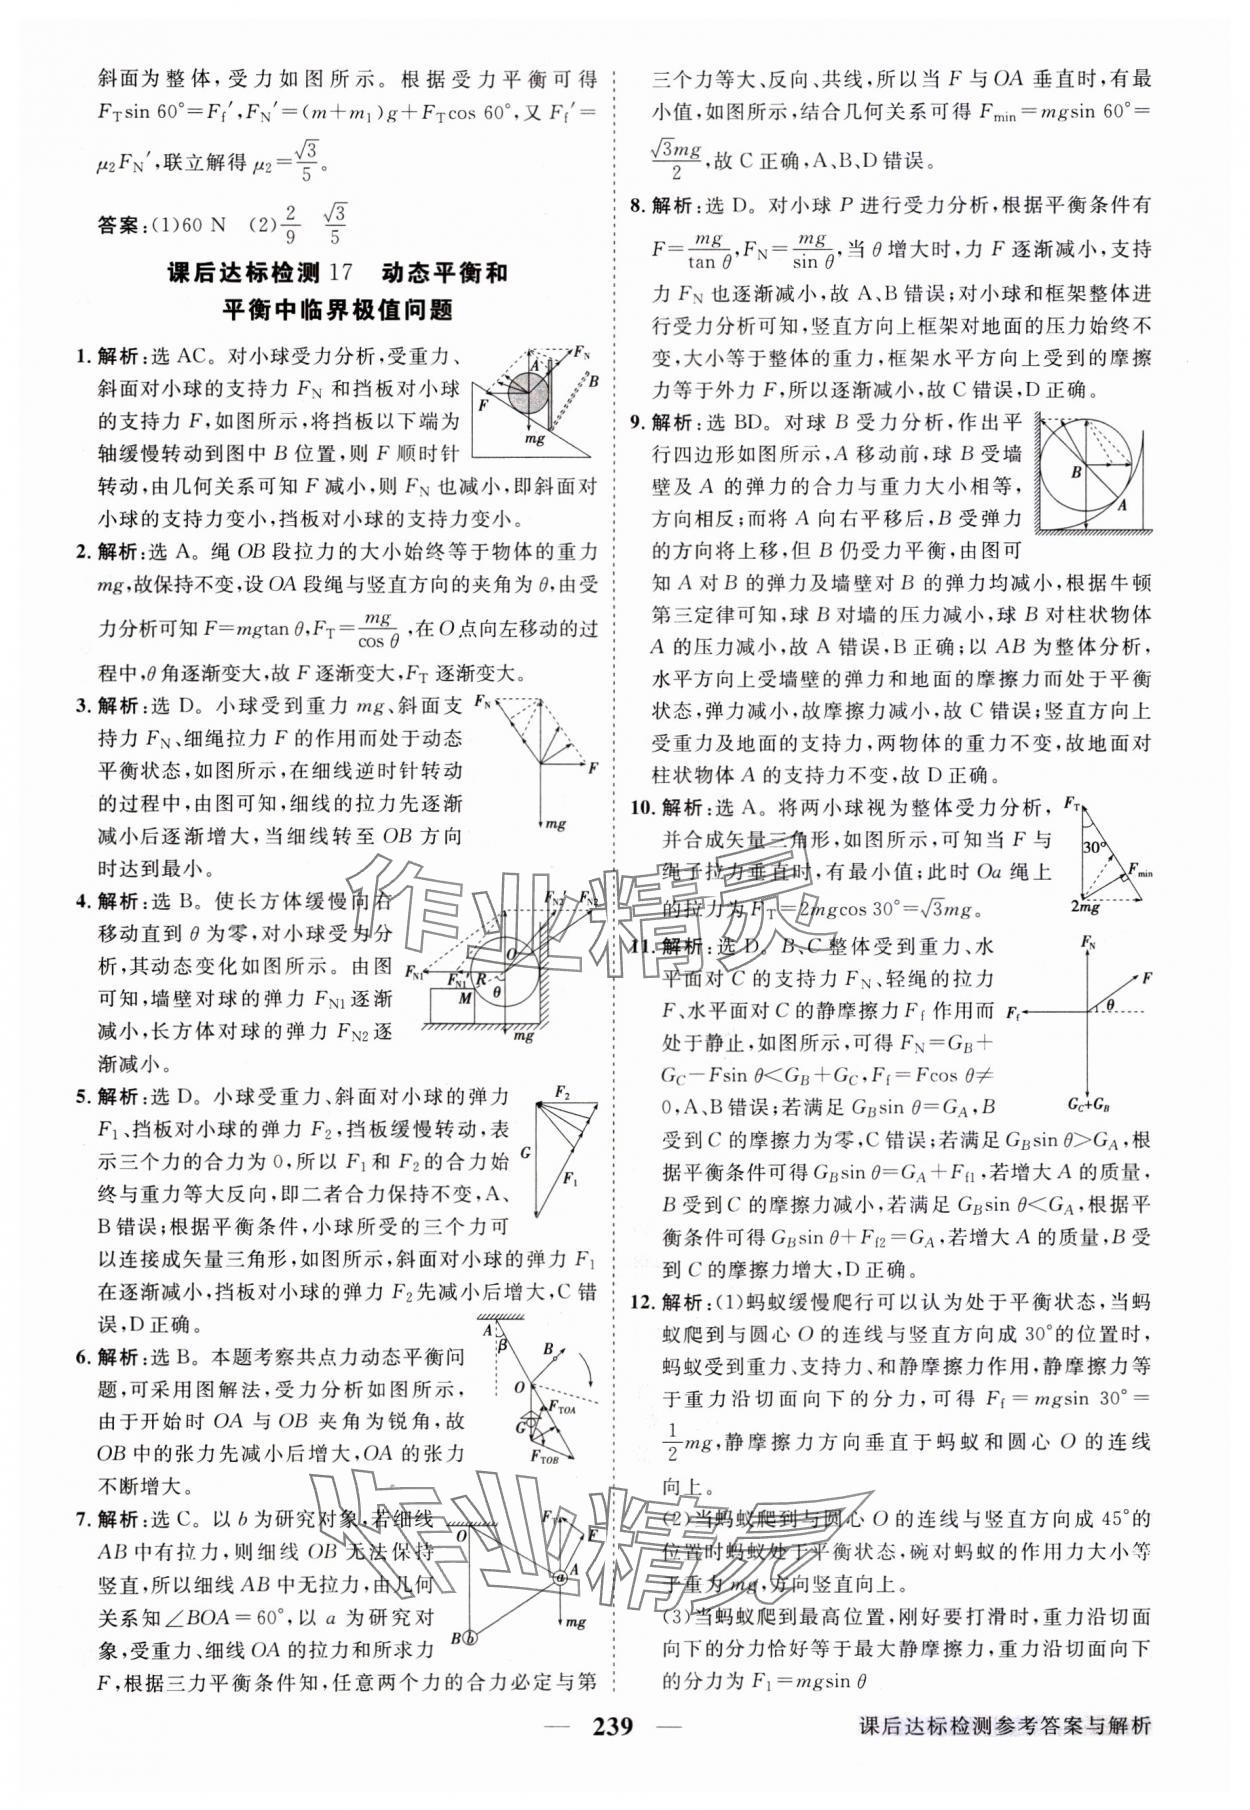 斜面为整体，受力如图所示。根据受力平衡可得
F_T sin 60°=F_f′,F_N′=(m+m₁)g+F_T cos 60°,又 F_f′=
μ₂F_N′,联立解得 μ₂=√3/5。
答案:(1)60 N (2)2/9 √3/5
课后达标检测 17 动态平衡和
平衡中临界极值问题
1. 解析:选 AC。对小球受力分析,受重力、
斜面对小球的支持力 F_N 和挡板对小球
的支持力 F,如图所示,将挡板以下端为
轴缓慢转动到图中 B 位置,则 F 顺时针
转动,由几何关系可知 F 减小,则 F_N 也减小,即斜面对
小球的支持力变小,挡板对小球的支持力变小。
F_N
A
B
F
mg
2. 解析:选 A。绳 OB 段拉力的大小始终等于物体的重力
mg,故保持不变,设 OA 段绳与竖直方向的夹角为 θ,由受
力分析可知 F=mgtan θ,F_T=mg/cos θ,在 O 点向左移动的过
程中,θ 角逐渐变大,故 F 逐渐变大,F_T 逐渐变大。
3. 解析:选 D。小球受到重力 mg、斜面支
持力 F_N、细绳拉力 F 的作用而处于动态
平衡状态,如图所示,在细线逆时针转动
的过程中,由图可知,细线的拉力先逐渐
减小后逐渐增大,当细线转至 OB 方向
时达到最小。
F_N
F
mg
4. 解析:选 B。使长方体缓慢向右
移动直到 θ 为零,对小球受力分
析,其动态变化如图所示。由图
可知,墙壁对球的弹力 F_N1 逐渐
减小,长方体对球的弹力 F_N2 逐
渐减小。
F_N2′ F_N2
O
F_N1
F_N1′ R
M θ
mg
5. 解析:选 D。小球受重力、斜面对小球的弹力
F₁、挡板对小球的弹力 F₂,挡板缓慢转动,表
示三个力的合力为 0,所以 F₁ 和 F₂ 的合力始
终与重力等大反向,即二者合力保持不变,A、
B 错误;根据平衡条件,小球所受的三个力可
以连接成矢量三角形,如图所示,斜面对小球的弹力 F₁
在逐渐减小,挡板对小球的弹力 F₂ 先减小后增大,C 错
误,D 正确。
F₂
G
F₁
6. 解析:选 B。本题考察共点力动态平衡问
题,可采用图解法,受力分析如图所示,
由于开始时 OA 与 OB 夹角为锐角,故
OB 中的张力先减小后增大,OA 的张力
不断增大。
A β
B
O
F_TOA
G
F_TOB
7. 解析:选 C。以 b 为研究对象,若细线
AB 中有拉力,则细线 OB 无法保持
竖直,所以细线 AB 中无拉力,由几何
关系知∠BOA=60°,以 a 为研究对
象,受重力、细线 OA 的拉力和所求力
F,根据三力平衡条件知,任意两个力的合力必定与第
O
A
a
mg
B b
三个力等大、反向、共线,所以当 F 与 OA 垂直时,有最
小值,如图所示,结合几何关系可得 F_min=mgsin 60°=
√3mg/2,故 C 正确,A、B、D 错误。
8. 解析:选 D。对小球 P 进行受力分析,根据平衡条件有
F=mg/tan θ,F_N=mg/sin θ,当 θ 增大时,力 F 逐渐减小,支持
力 F_N 也逐渐减小,故 A、B 错误;对小球和框架整体进
行受力分析可知,竖直方向上框架对地面的压力始终不
变,大小等于整体的重力,框架水平方向上受到的摩擦
力等于外力 F,所以逐渐减小,故 C 错误,D 正确。
9. 解析:选 BD。对球 B 受力分析,作出平
行四边形如图所示,A 移动前,球 B 受墙
壁及 A 的弹力的合力与重力大小相等,
方向相反;而将 A 向右平移后,B 受弹力
的方向将上移,但 B 仍受力平衡,由图可
知 A 对 B 的弹力及墙壁对 B 的弹力均减小,根据牛顿
第三定律可知,球 B 对墙的压力减小,球 B 对柱状物体
A 的压力减小,故 A 错误,B 正确;以 AB 为整体分析,
水平方向上受墙壁的弹力和地面的摩擦力而处于平衡
状态,弹力减小,故摩擦力减小,故 C 错误;竖直方向上
受重力及地面的支持力,两物体的重力不变,故地面对
柱状物体 A 的支持力不变,故 D 正确。
B
A
10. 解析:选 A。将两小球视为整体受力分析,
并合成矢量三角形,如图所示,可知当 F 与
绳子拉力垂直时,有最小值;此时 Oa 绳上
的拉力为 F_T=2mgcos 30°=√3mg。
F_T
30°
F_min
2mg
11. 解析:选 D。B、C 整体受到重力、水
平面对 C 的支持力 F_N、轻绳的拉力
F、水平面对 C 的静摩擦力 F_f 作用而
处于静止,如图所示,可得 F_N=G_B+
G_C-Fsin θ<G_B+G_C,F_f=Fcos θ≠
0,A、B 错误;若满足 G_B sin θ=G_A,B
受到 C 的摩擦力为零,C 错误;若满足 G_B sin θ>G_A,根
据平衡条件可得 G_B sin θ=G_A+F_f1,若增大 A 的质量,
B 受到 C 的摩擦力减小,若满足 G_B sin θ<G_A,根据平
衡条件可得 G_B sin θ+F_f2=G_A,若增大 A 的质量,B 受
到 C 的摩擦力增大,D 正确。
F_N
F
F_f θ
G_C+G_B
12. 解析:(1)蚂蚁缓慢爬行可以认为处于平衡状态,当蚂
蚁爬到与圆心 O 的连线与竖直方向成 30°的位置时,
蚂蚁受到重力、支持力、和静摩擦力作用,静摩擦力等
于重力沿切面向下的分力,可得 F_f=mgsin 30°=
1/2 mg,静摩擦力方向垂直于蚂蚁和圆心 O 的连线
向上。
(2)当蚂蚁爬到与圆心 O 的连线与竖直方向成 45°的
位置时蚂蚁处于平衡状态,碗对蚂蚁的作用力大小等
于重为 mg,方向竖直向上。
(3)当蚂蚁爬到最高位置,刚好要打滑时,重力沿切面
向下的分力恰好等于最大静摩擦力,重力沿切面向下
的分力为 F₁=mgsin θ
作业精灵
作业精灵
239
课后达标检测参考答案与解析